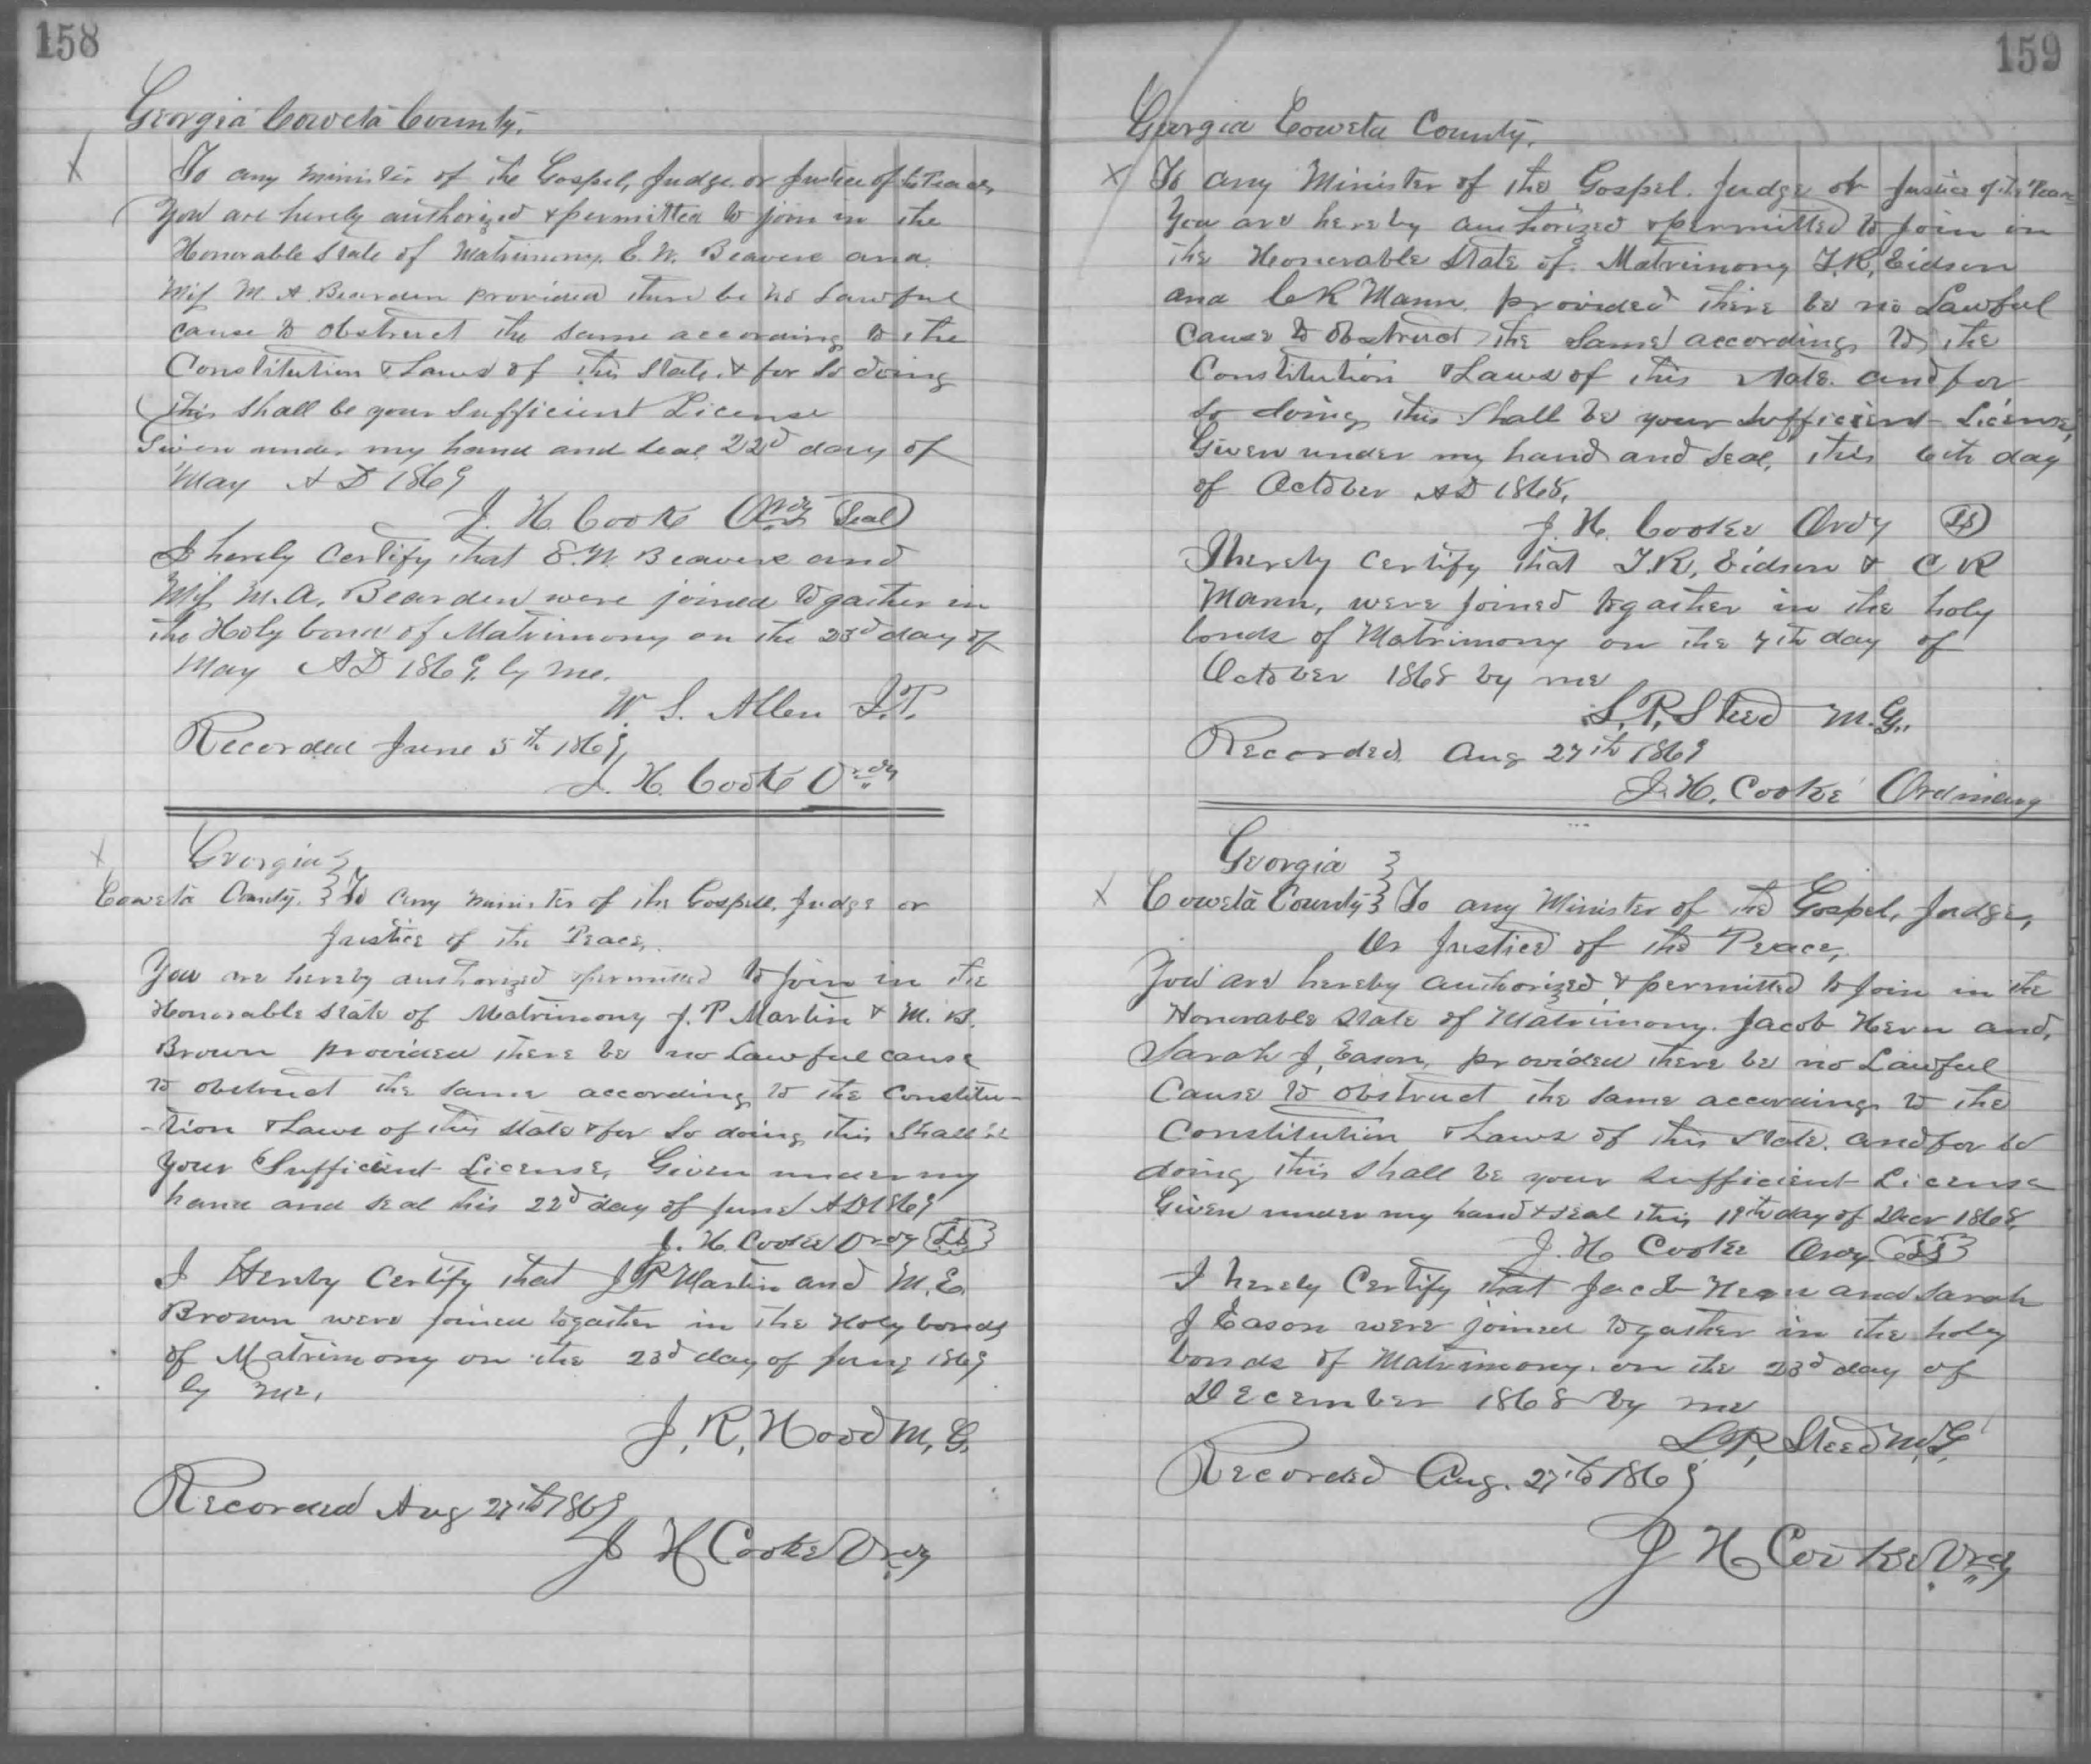 158
Georgia Coweta County.
X To any minister of the Gospel, Judge or Justice of the Peace,
You are hereby authorized & permitted to join in the
Honorable State of Matrimony. E. W. Beavers and
Miss M. A. Bearden provided there be no Lawful
cause to obstruct the same according to the
Constitution & Laws of this State. & for so doing
this shall be your sufficient License
Given under my hand and seal 22d day of
May AD 1869
J. H. Cooke Ordy Seal
I hereby Certify that E. W. Beavers and
Miss M. A. Bearden were joined togather in
the Holy bond of Matrimony on the 23d day of
May AD 1869. by me.
W. S. Allen J.P.
Recorded June 5th 1869
J. H. Cooke Ordy
X Georgia }
Coweta County. } To any minister of the Gospell, Judge or
Justice of the Peace,
You are hereby authorized & permitted to join in the
Honorable State of Matrimony J. P Martin & M.
Brown provided there be no Lawful cause
to obstruct the same according to the Constitu-
-tion & Laws of this State & for so doing this Shall be
your Sufficient License, Given under my
hand and seal this 22d day of June AD 1869
J. H. Cooke Ordy LS
I Hereby Certify that J P Martin and M. E.
Brown were joined togather in the Holy bonds
of Matrimony on the 23d day of June 1869
by me,
J. R. Hood M. G.
Recorded Aug 27th 1869
J H Cooke Ordy
159
Georgia Coweta County.
X To any Minister of the Gospel. Judge or Justice of the Peace
You are hereby authorized & permitted to join in
the Honorable State of Matrimony J. R. Eidson
and C R Mann. provided there be no Lawful
Cause to obstruct the same according to the
Constitution & Laws of this State. and for
so doing this Shall be your sufficient License,
Given under my hand and seal, this 6th day
of October AD 1868,
J. H. Cooke Ordy LS
I hereby Certify that J. R. Eidson & C R
Mann, were joined togather in the holy
bonds of Matrimony on the 7th day of
October 1868 by me
L. P. Steed M. G.
Recorded Aug 27th 1869
J. H. Cooke Ordinary
Georgia }
X Coweta County } To any Minister of the Gospel, Judge,
Or Justice of the Peace,
You are hereby authorized & permitted to join in the
Honorable State of Matrimony. Jacob Hern and,
Sarah J, Eason, provided there be no Lawful
Cause to obstruct the same according to the
Constitution & Laws of this State. and for so
doing this shall be your sufficient License
Given under my hand & seal this 19th day of Decr 1868,
J. H Cooke Ordy LS
I hereby Certify that Jacob Hern and Sarah
J Eason were joined togather in the holy
bonds of Matrimony. on the 23d day of
December 1868 by me
L. P. Steed M. G.
Recorded Aug. 27th 1869
J H Cooke Ordy